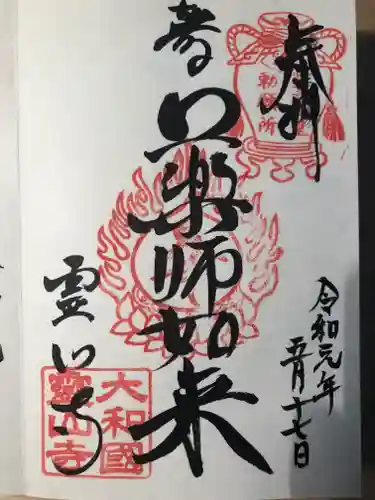 奉拝
薬師如来
霊山寺
令和元年
五月十七日
大和國
靈山寺
勅願所